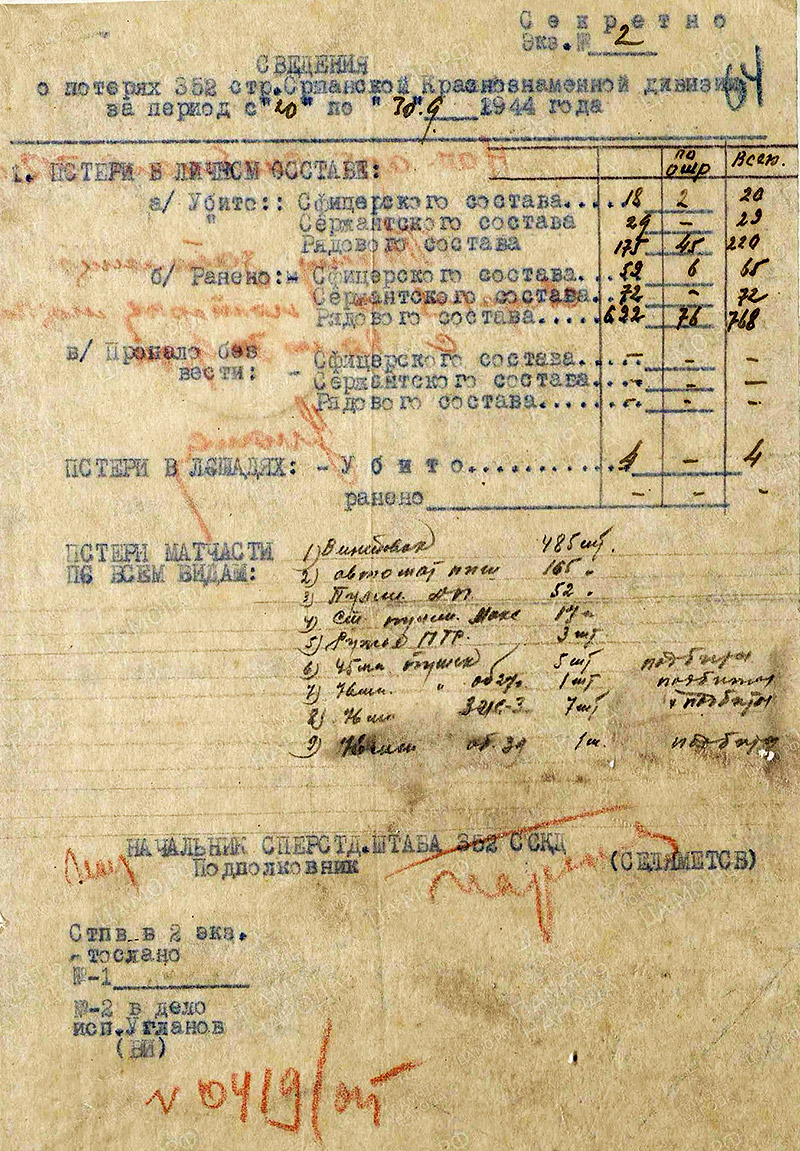 Секретно
Экз.№ 2
64
СВЕДЕНИЯ
о потерях 352 стр.Оршанской Краснознаменной дивизии
за период с "20" по "30".9 1944 года
по ошр Всего.
1. ПОТЕРИ В ЛИЧНОМ СОСТАВЕ:
а/ Убито:: Офицерского состава.... 18 2 20
" Сержантского состава 29 - 29
Рядового состава 175 45 220
б/ Ранено:- Офицерского состава... 59 6 65
Сержантского состава.. 72 - 72
Рядового состава..... 692 76 768
в/ Пропало без
вести: - Офицерского состава.... - - -
Сержантского состава... - - -
Рядового состава....... - - -
ПОТЕРИ В ЛОШАДЯХ: - Убито........... 4 - 4
ранено - - -
ПОТЕРИ МАТЧАСТИ
ПО ВСЕМ ВИДАМ:
1) Винтовок 485 шт.
2) автомат ппш 165 "
3) Пулем. ДП 52 "
4) Ст. пулем. Макс 17 "
5) Ружей ПТР. 3 шт
6) 45мм пушек 5 шт подбиты
7) 76мм. " об 27г. 1 шт подбитой
8) 76 мм ЗИС-3 7 шт подбиты
9) 76 мм об. 39 1 ш. подбита
НАЧАЛЬНИК ОПЕРОТД.ШТАБА 352 СОКД
Подполковник (СЕЛЯМЕТОВ)
Отпв в 2 экз.
-тослано
№-1
№-2 в дело
исп.Угланов
(ВИ)
№ 0419/от